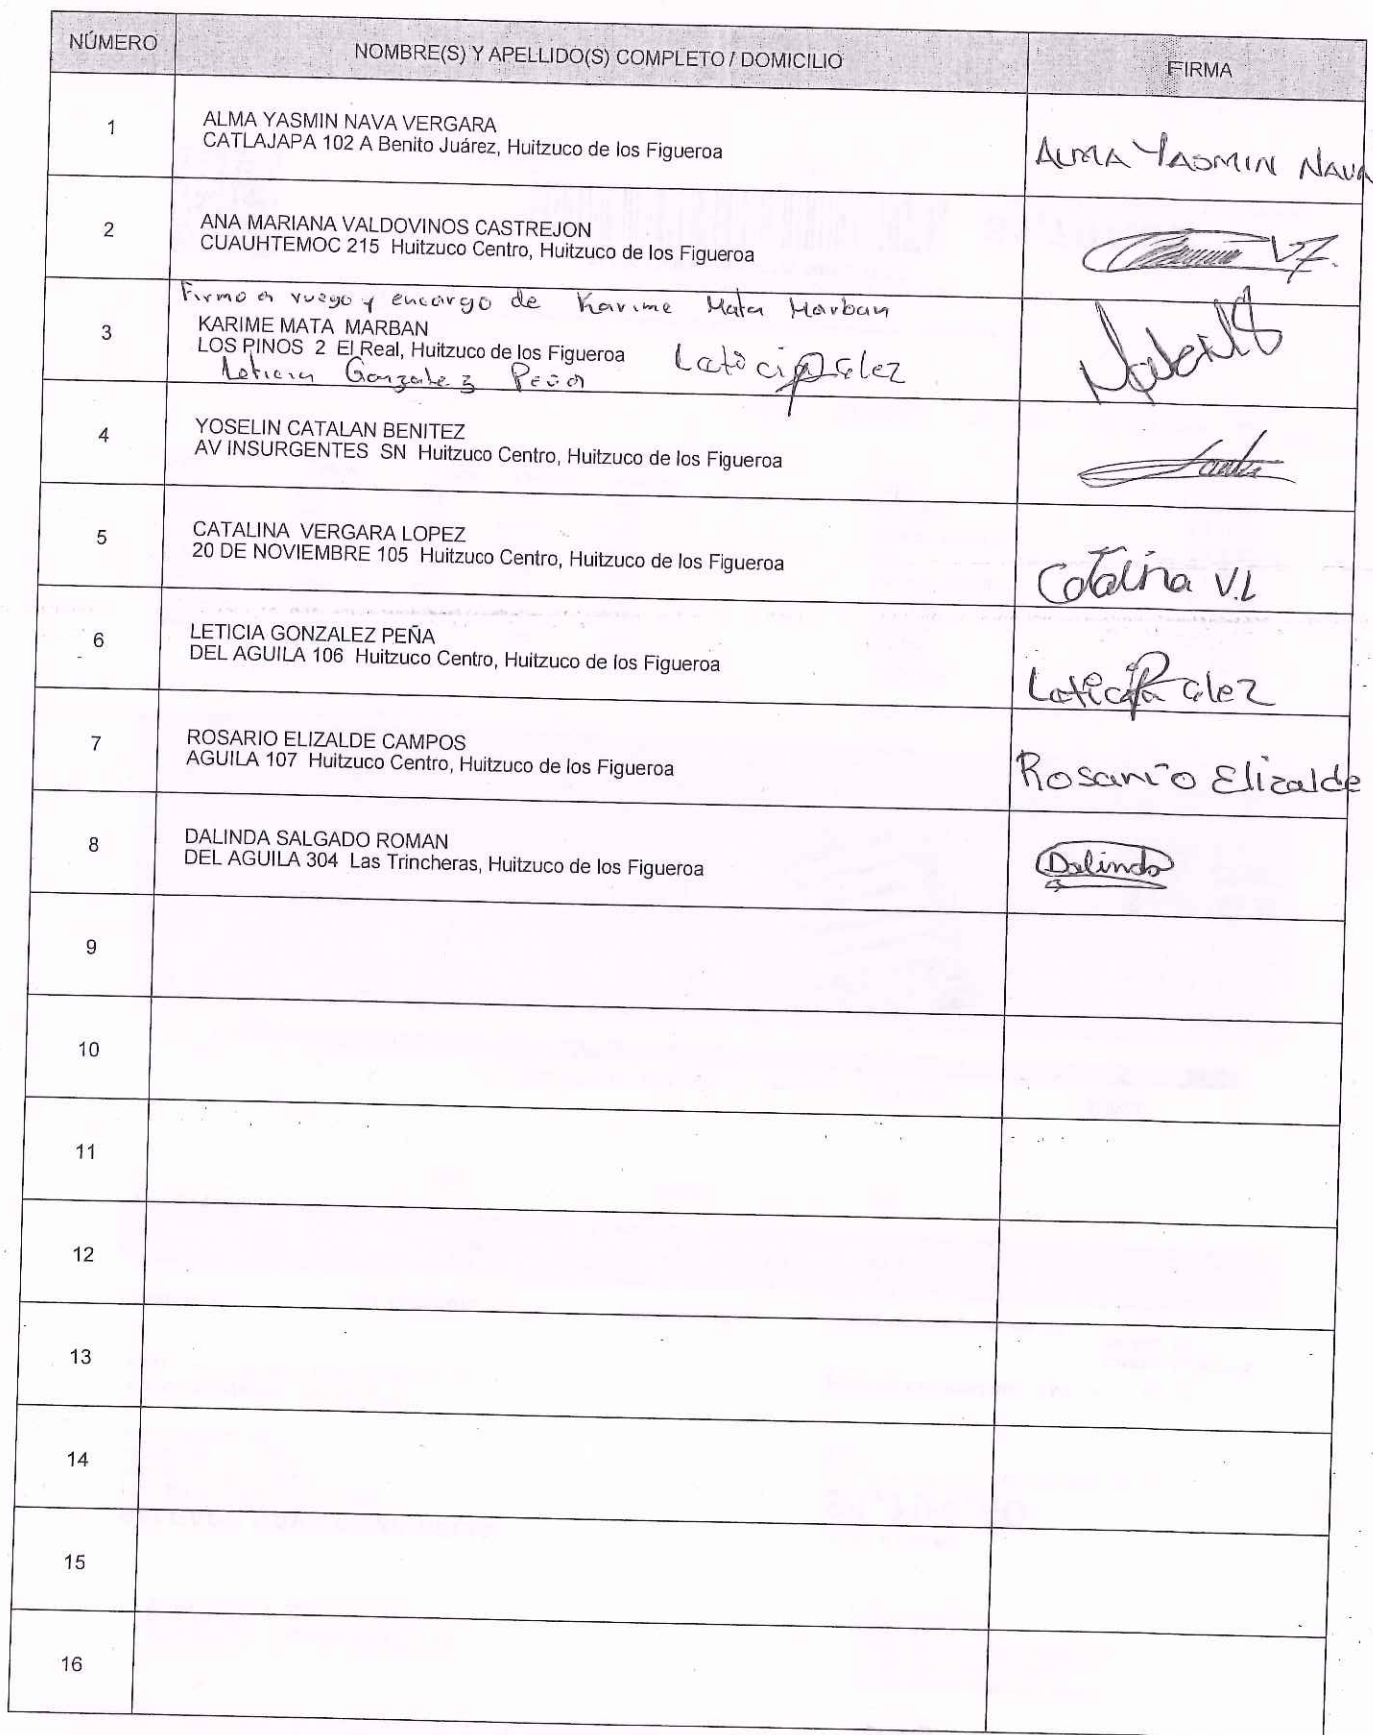 NÚMERO NOMBRE(S) Y APELLIDO(S) COMPLETO / DOMICILIO FIRMA
1 ALMA YASMIN NAVA VERGARA
CATLAJAPA 102 A Benito Juárez, Huitzuco de los Figueroa
ALMA YASMIN NAVA
2 ANA MARIANA VALDOVINOS CASTREJON
CUAUHTEMOC 215 Huitzuco Centro, Huitzuco de los Figueroa
Firmo a ruego y encargo de Karime Mata Marban
3 KARIME MATA MARBAN
LOS PINOS 2 El Real, Huitzuco de los Figueroa
Leticia Gonzalez Peña
4 YOSELIN CATALAN BENITEZ
AV INSURGENTES SN Huitzuco Centro, Huitzuco de los Figueroa
5 CATALINA VERGARA LOPEZ
20 DE NOVIEMBRE 105 Huitzuco Centro, Huitzuco de los Figueroa
Catalina V.L
6 LETICIA GONZALEZ PEÑA
DEL AGUILA 106 Huitzuco Centro, Huitzuco de los Figueroa
7 ROSARIO ELIZALDE CAMPOS
AGUILA 107 Huitzuco Centro, Huitzuco de los Figueroa
Rosario Elizalde
8 DALINDA SALGADO ROMAN
DEL AGUILA 304 Las Trincheras, Huitzuco de los Figueroa
Dalinda
9
10
11
12
13
14
15
16